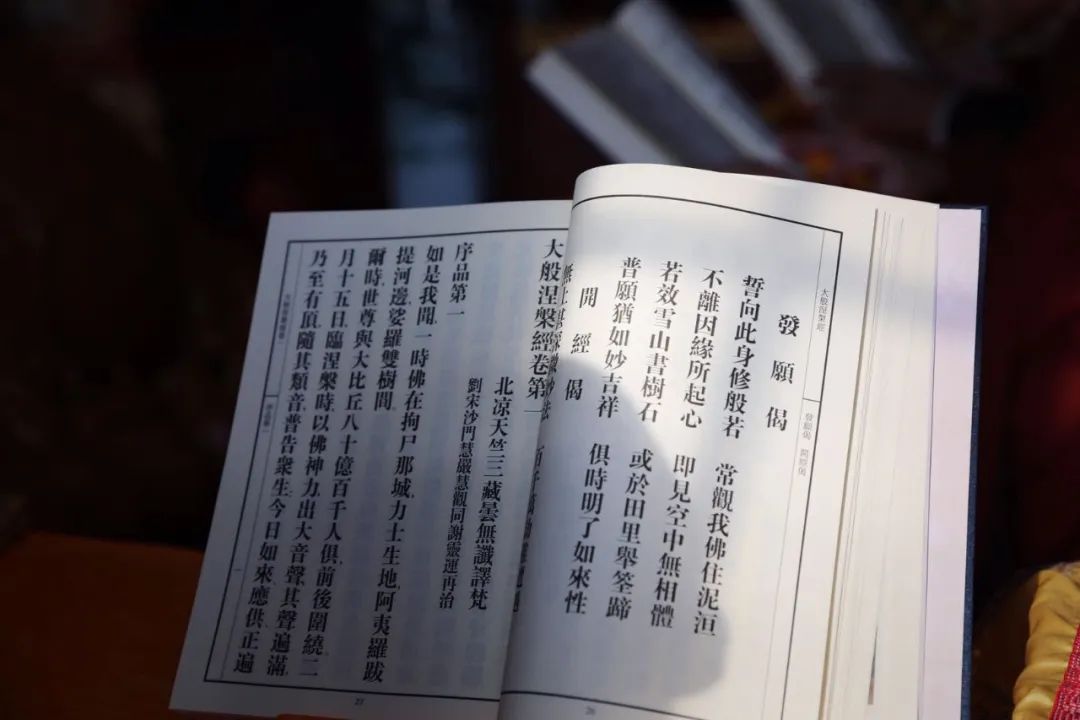 大般涅槃經
發願偈 開經偈
發願偈
誓向此身修般若 常觀我佛住泥洹
不離因緣所起心 即見空中無相體
若效雪山書樹石 或於田里舉筌蹄
普願猶如妙吉祥 俱時明了如來性
開經偈
無上甚深微妙法 百千萬劫
26
大般涅槃經卷第一
北凉天竺三藏曇無讖譯梵
劉宋沙門慧嚴慧觀同謝靈運再治
序品第一
如是我聞一時佛在拘尸那城力士生地阿夷羅跋
提河邊娑羅雙樹間
爾時世尊與大比丘八十億百千人俱前後圍繞二
月十五日臨涅槃時以佛神力出大音聲其聲遍滿
乃至有頂隨其類音普告衆生今日如來應供正遍
27